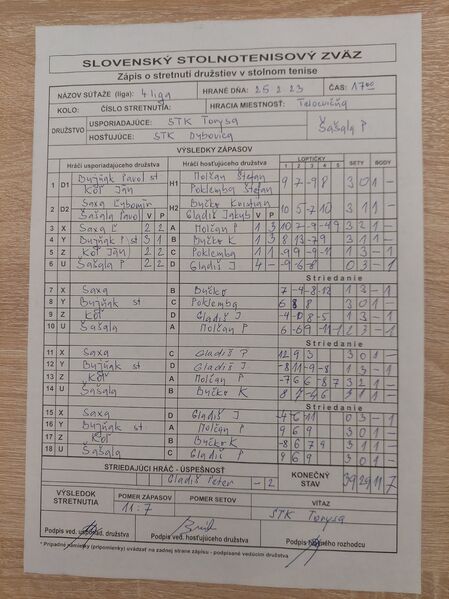 SLOVENSKÝ STOLNOTENISOVÝ ZVÄZ
Zápis o stretnutí družstiev v stolnom tenise
NÁZOV SÚŤAŽE (liga): 4 liga HRANÉ DŇA: 25 2 23 ČAS: 17 00
KOLO: ČÍSLO STRETNUTIA: HRACIA MIESTNOSŤ: Telocvičňa
DRUŽSTVO USPORIADAJÚCE: STK Torysa Šašala P
HOSŤUJÚCE: STK Dubovica
VÝSLEDKY ZÁPASOV
Hráči usporiadajúceho družstva Hráči hosťujúceho družstva LOPTIČKY SETY BODY
1 2 3 4 5
1 D1 Bujňak Pavol st H1 Molčan Štefan 9 7 -9 8 3 0 1 -
Kóf Ján Poklemba Štefan
2 D2 Saxa Ľubomír H2 Bučko Kristián 10 5 -7 10 3 1 1 -
Šašala Pavol V P Gladiš Jakub V P
3 X Saxa Ľ 2 2 A Molčan P 1 3 10 7 -9 -4 9 3 2 1 -
4 Y Bujňak P st 3 1 B Bučko K 1 3 8 13 -7 9 3 1 1 -
5 Z Kóf Ján 2 2 C Poklemba 1 1 -9 9 -9 -11 1 3 - 1
6 U Šašala P 2 2 D Gladiš J 4 - -9 -6 -8 0 3 - 1
Striedanie
7 X Saxa B Bučko 7 -4 -8 -12 1 3 - 1
8 Y Bujňak st C Poklemba 6 8 8 3 0 1 -
9 Z Kóf D Gladiš J -4 -8 5 1 3 - 1
10 U Šašala A Molčan P 6 -6 9 -11 2 3 - 1
Striedanie
11 X Saxa C Gladiš P 12 9 3 3 0 1 -
12 Y Bujňak st D Gladiš J -8 11 -9 -8 1 3 - 1
13 Z Kóf A Molčan P -7 6 6 -8 7 3 2 1 -
14 U Šašala B Bučko K 1 3 - 1
Striedanie
15 X Saxa D Gladiš J -4 6 11 0 3 - 1
16 Y Bujňak st A Molčan P 9 6 9 3 0 1 -
17 Z Kóf B Bučko K -8 6 7 9 3 1 1 -
18 U Šašala C Gladiš P 9 6 9 3 0 1 -
STRIEDAJÚCI HRÁČ - ÚSPEŠNOSŤ KONEČNÝ STAV 39 29 11 7
Gladiš Peter - 2
VÝSLEDOK STRETNUTIA POMER ZÁPASOV POMER SETOV VÍŤAZ
11:7 STK Torysa
Podpis ved. usporiad. družstva Podpis ved. hosťujúceho družstva Podpis hlavného rozhodcu
* Prípadné námietky (pripomienky) uvádzať na zadnej strane zápisu - podpísané vedúcim družstva